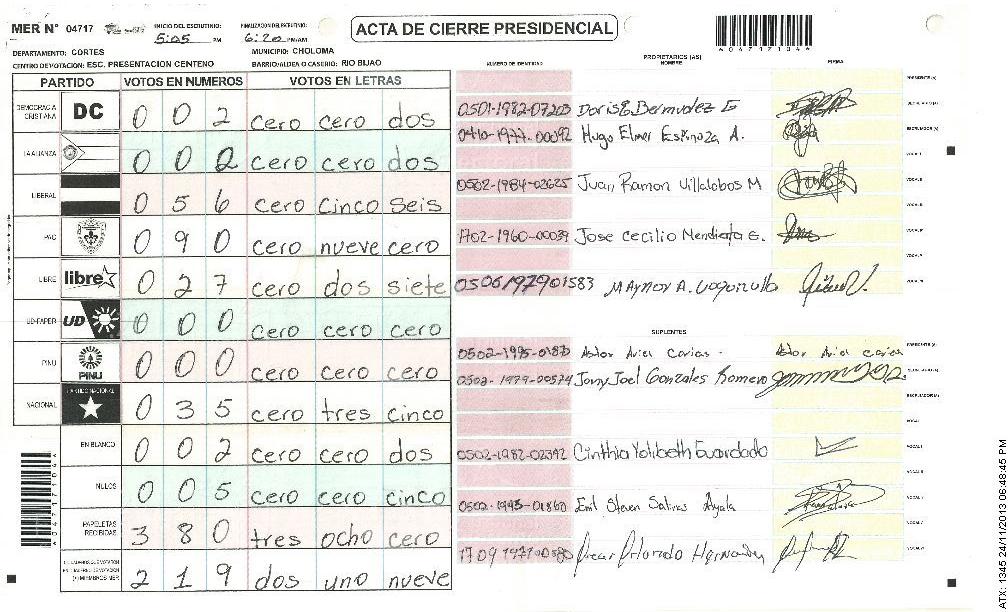 MER N° 04717
INICIO DEL ESCRUTINIO:
5:05 PM
FINALIZACION DEL ESCRUTINIO:
6:20 PM/AM
ACTA DE CIERRE PRESIDENCIAL
DEPARTAMENTO: CORTES
MUNICIPIO: CHOLOMA
CENTRO DE VOTACION: ESC. PRESENTACION CENTENO
BARRIO/ALDEA O CASERIO: RIO BIJAO
PARTIDO VOTOS EN NUMEROS VOTOS EN LETRAS
DEMOCRACIA CRISTIANA DC 0 0 2 cero cero dos
LA ALIANZA 0 0 2 cero cero dos
LIBERAL 0 5 6 cero cinco seis
PAC 0 9 0 cero nueve cero
LIBRE libre 0 2 7 cero dos siete
UD-FAPER UD 0 0 0 cero cero cero
PINU PINU 0 0 0 cero cero cero
NACIONAL PARTIDO NACIONAL 0 3 5 cero tres cinco
EN BLANCO 0 0 2 cero cero dos
NULOS 0 0 5 cero cero cinco
PAPELETAS RECIBIDAS 3 8 0 tres ocho cero
(+) MIEMBROS MER 2 1 9 dos uno nueve
NUMERO DE IDENTIDAD
PROPIETARIOS (AS)
NOMBRE
FIRMA
PRESIDENTE (A)
0501-1982-07203 Doris E Bermudez G SECRETARIO (A)
0410-1977-00092 Hugo Elmer Espinoza A. ESCRUTADOR (A)
VOCAL I
0502-1984-02625 Juan Ramon Villalobos M VOCAL II
VOCAL III
1702-1960-00039 Jose Cecilio Mendieta G. VOCAL IV
VOCAL V
0506197901583 Maynor A.
SUPLENTES
0502-1995-01870 Astor Ariel Carias Astor Ariel Carias PRESIDENTE (A)
0502-1979-00574 Jony Joel Gonzales Romero SECRETARIO (A)
ESCRUTADOR (A)
VOCAL I
0502-1982-02392 Cinthia Yolibeth Guardado
0502-1993-01860 Emil Steven Ayala
1709 1971 00580 Oscar Orlando Hernandez
4047171044
ATX: 1345 24/11/2013 06:48:45 PM